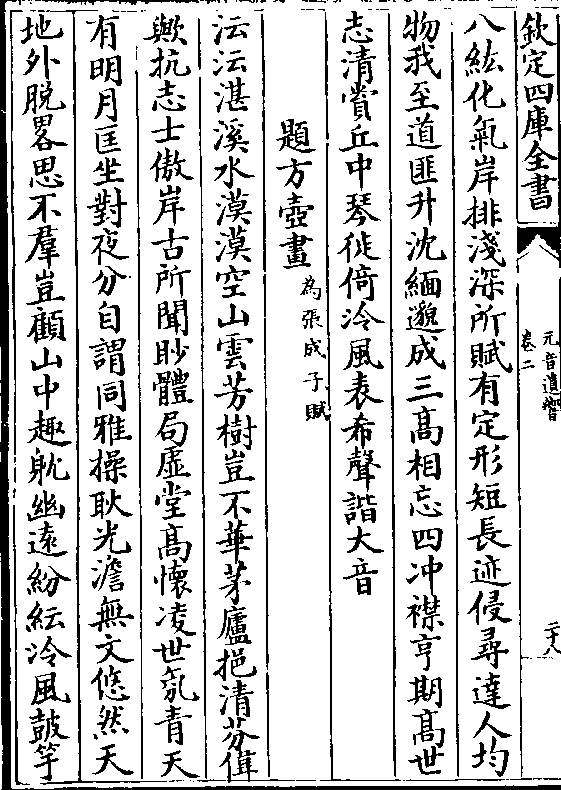 欽定四庫全書
元音遺響
卷二
二十八
八紘化氣岸排淺深所賦有定形短長迹侵尋達人均
物我至道匪升沈緬邈成三髙相忘四冲襟亨期髙世
志清賞丘中琴徙倚泠風表希聲諧大音
題方壺畫為張成子賦
沄沄湛溪水漠漠空山雲芳樹豈不華茅廬挹清芬偉
歟抗志士傲岸古所聞眇體局虛堂髙懷凌世氛青天
有明月匡坐對夜分自謂同雅操耿光澹無文悠然天
地外脱畧思不羣豈顧山中趣躭幽遠紛紜泠風鼓竽